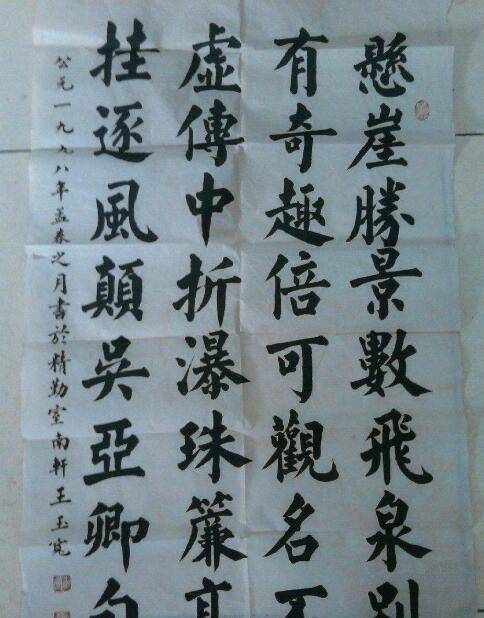 懸崖勝景數飛泉別
有奇趣倍可觀名不
虛傳中折瀑珠簾高
挂逐風顛吳亞卿句
公元一九九八年孟春之月書於精勤室南軒王玉寬